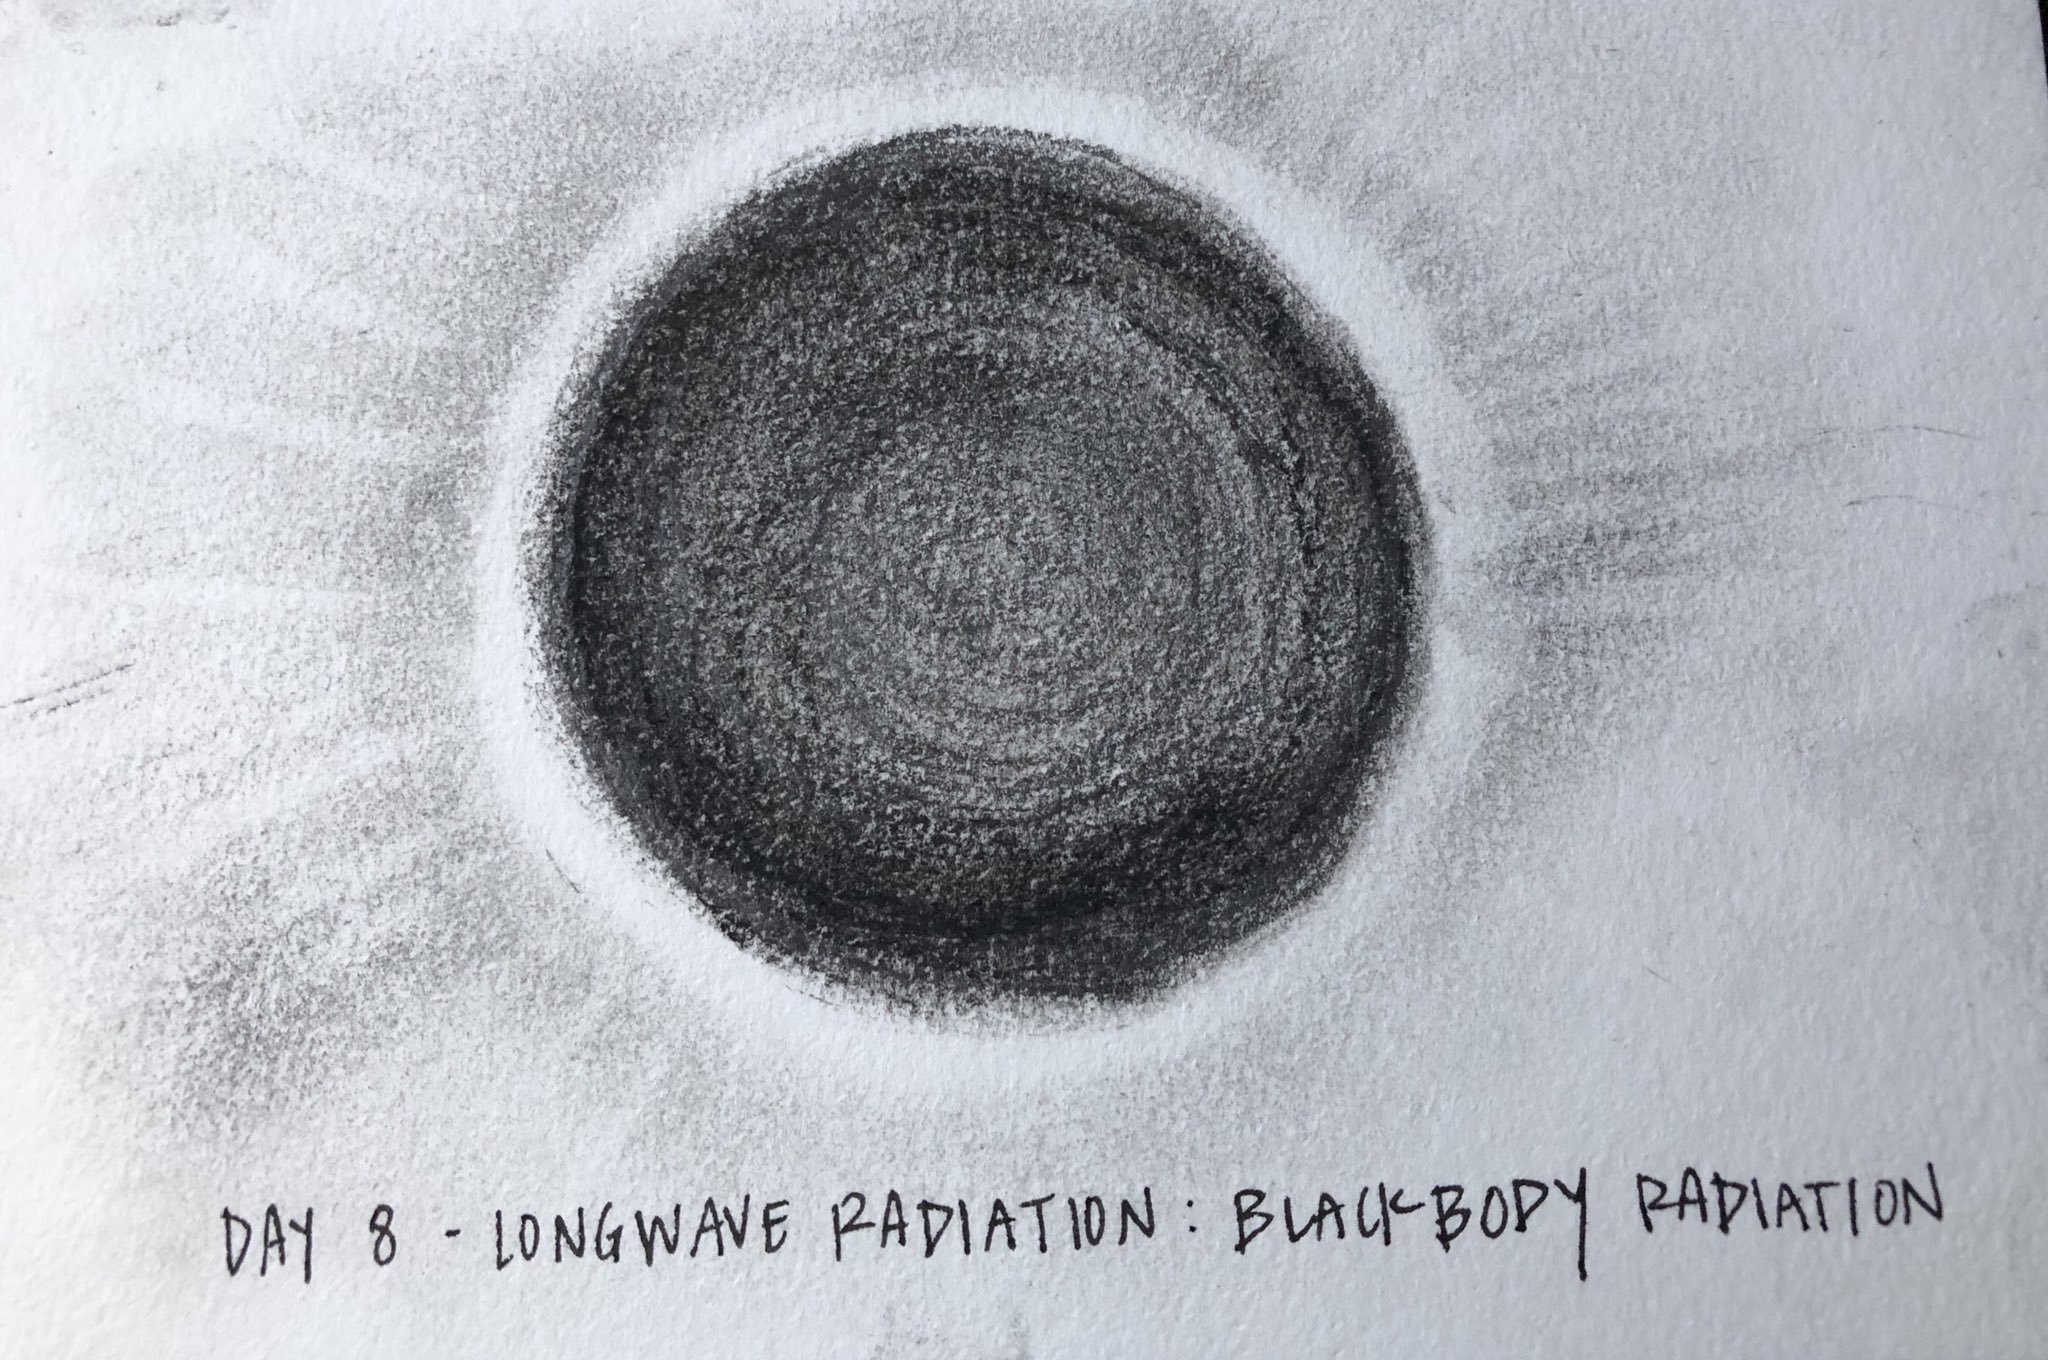 DAY 8 - LONGWAVE RADIATION: BLACKBODY RADIATION